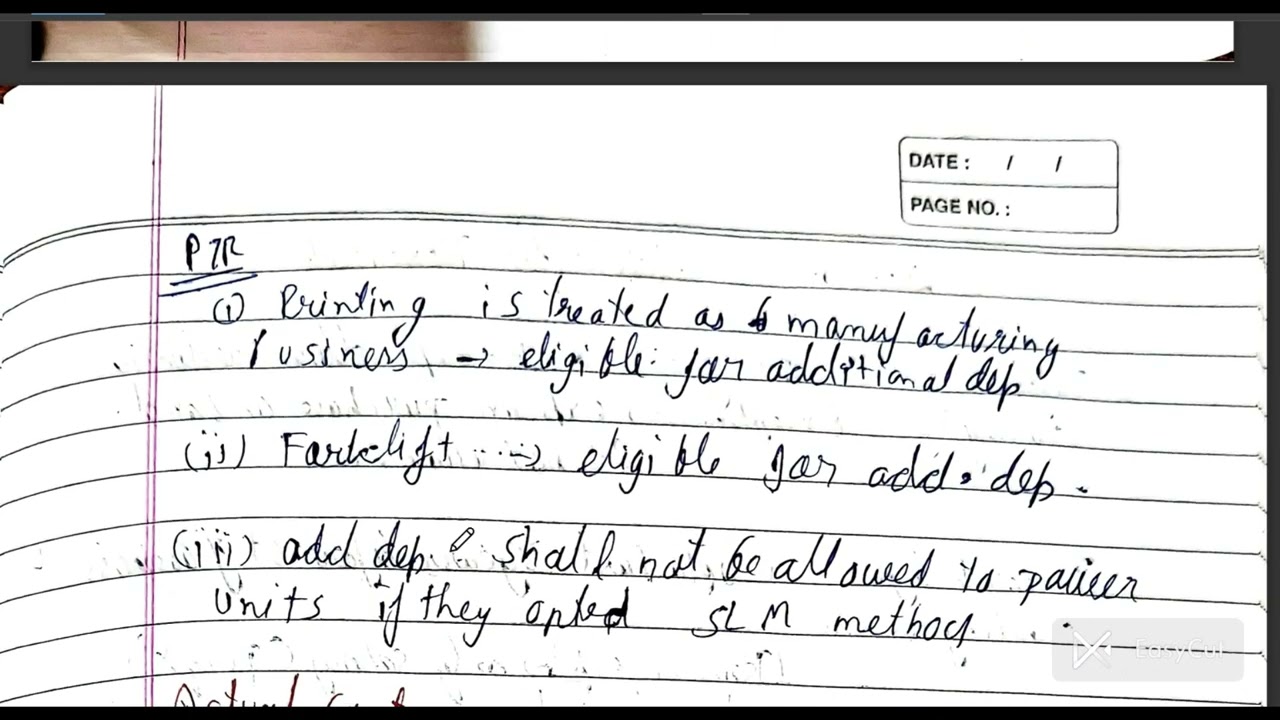 DATE : / /
PAGE NO. :
P 7R
(i) Printing is treated as manufacturing
business → eligible for additional dep
(ii) Forklift → eligible for add. dep.
(iii) add dep. shall not be allowed to power
units if they opted SLM method.
EasyCut
Actual